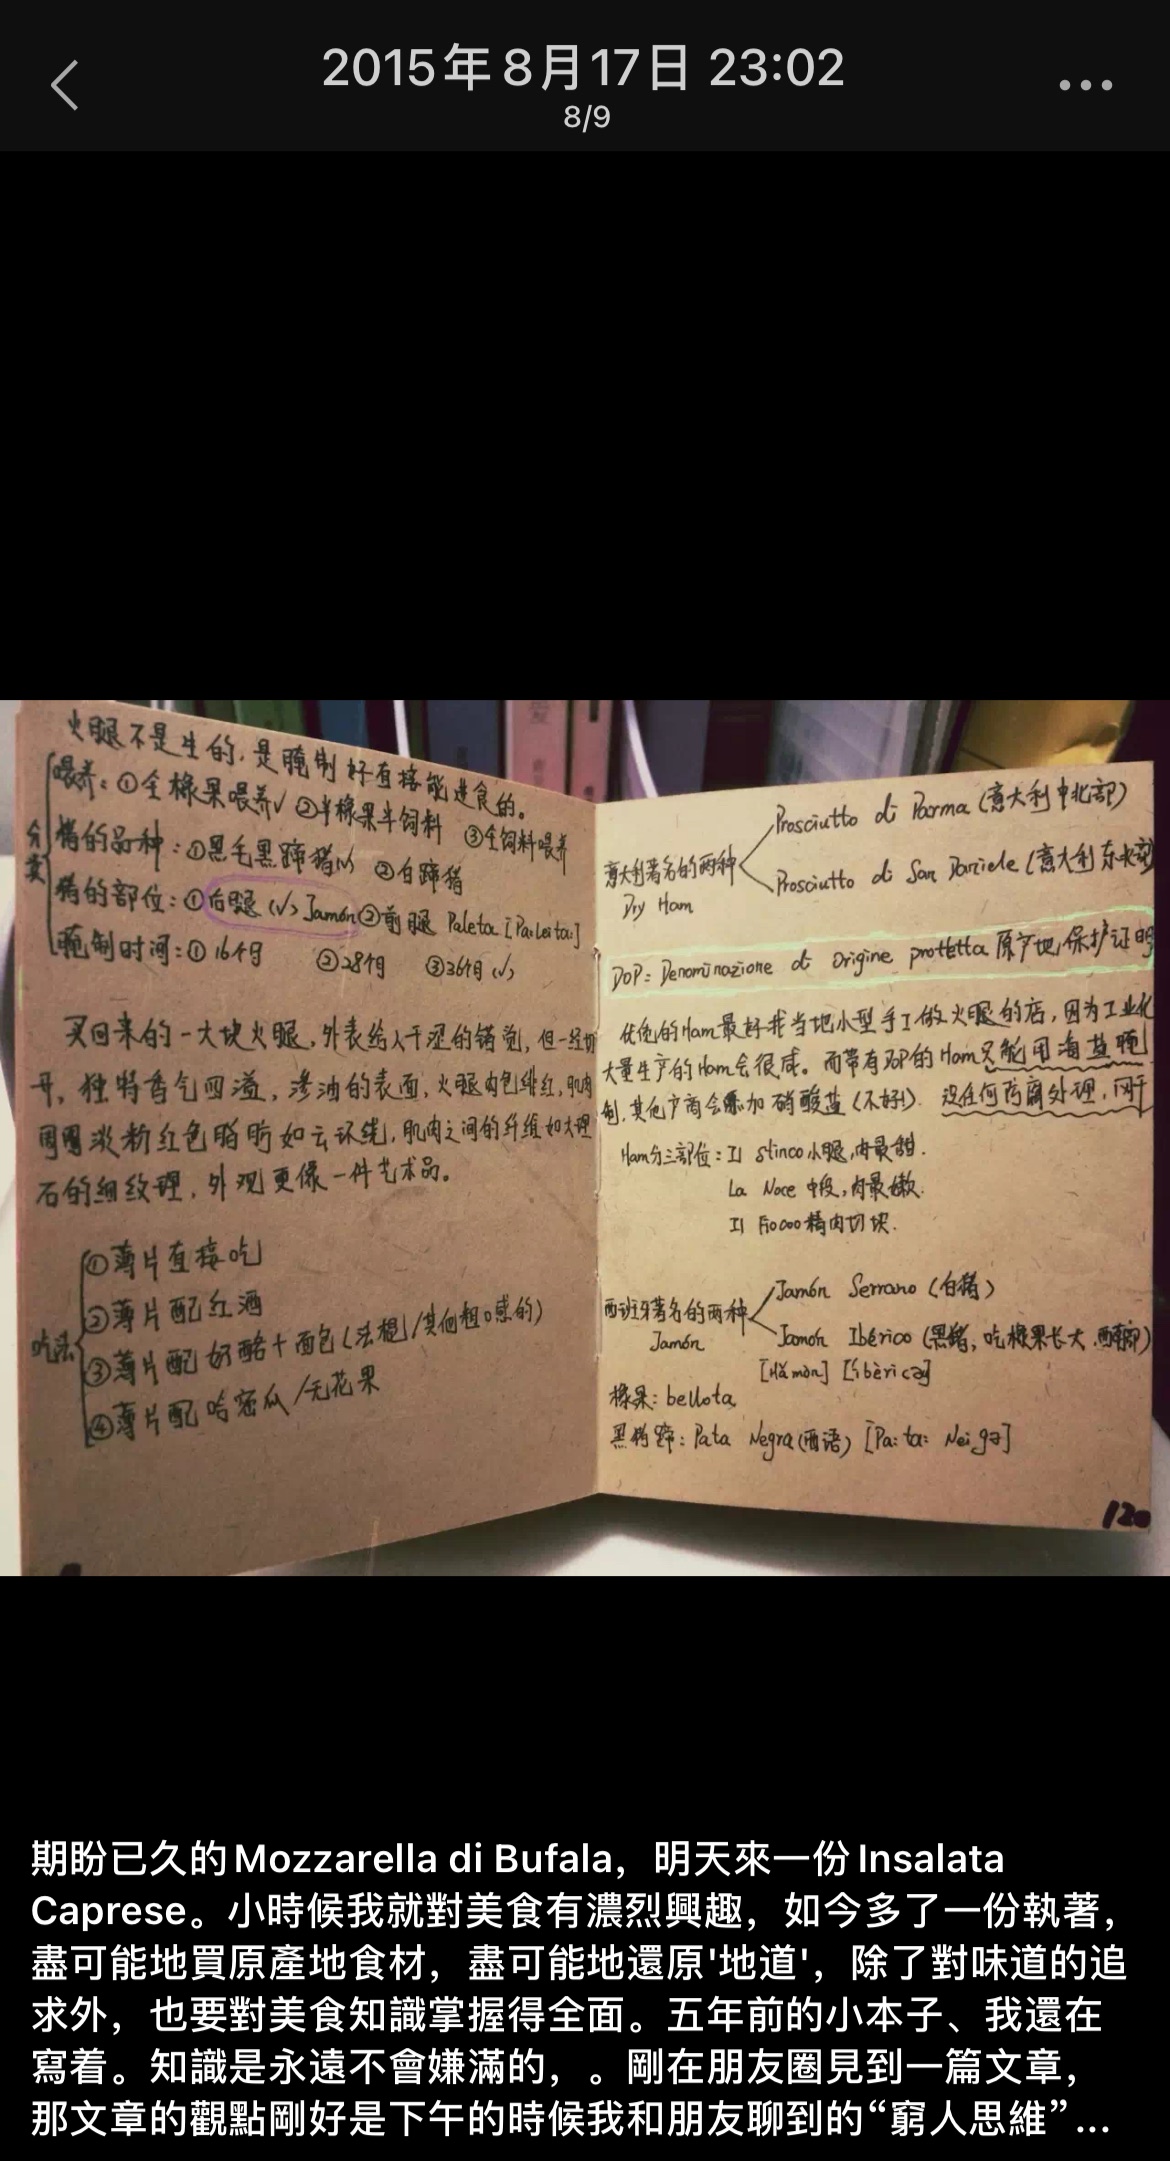 2015年8月17日 23:02
8/9
火腿不是生的，是腌制好直接能进食的。
分类
喂养：①全橡果喂养√ ②半橡果半饲料 ③全饲料喂养
猪的品种：①黑毛黑蹄猪(√) ②白蹄猪
猪的部位：①后腿(√) Jamón ②前腿 Paleta [Pa:Lei ta:]
腌制时间：①16个月 ②28个月 ③36个月(√)
买回来的一大块火腿，外表给人干涩的错觉，但一经切
开，独特香气四溢，渗油的表面，火腿肉色绯红，肌肉
周围淡粉红色脂肪如云环绕，肌肉之间的纤维如大理
石的细纹理，外观更像一件艺术品。
吃法
①薄片直接吃
②薄片配红酒
③薄片配奶酪+面包(法棍/其他粗口感的)
④薄片配哈密瓜/无花果
意大利著名的两种
Dry Ham
Prosciutto di Parma (意大利中北部)
Prosciutto di San Daniele (意大利东北部
DOP: Denominazione di Origine protetta 原产地保护证明
优他的Ham最好我当地小型手工做火腿的店，因为工业化
大量生产的Ham会很咸。而带有DOP的Ham只能用海盐腌
制，其他产商会添加硝酸盐(不好!)．没任何防腐处理，
Ham分三部位：Il stinco 小腿,肉最甜．
La Noce 中段,肉最嫩．
Il Fiocco 精肉切块．
西班牙著名的两种
Jamón
Jamón Serrano (白猪)
Jamón Ibérico (黑猪，吃橡果长大，西南部)
橡果：bellota
黑猪蹄：Pata Negra (西语) [Pa: ta: Nei gə]
120
期盼已久的Mozzarella di Bufala，明天來一份Insalata
Caprese。小時候我就對美食有濃烈興趣，如今多了一份執著，
盡可能地買原產地食材，盡可能地還原'地道'，除了對味道的追
求外，也要對美食知識掌握得全面。五年前的小本子、我還在
寫着。知識是永遠不會嫌滿的，。剛在朋友圈見到一篇文章，
那文章的觀點剛好是下午的時候我和朋友聊到的“窮人思維”...